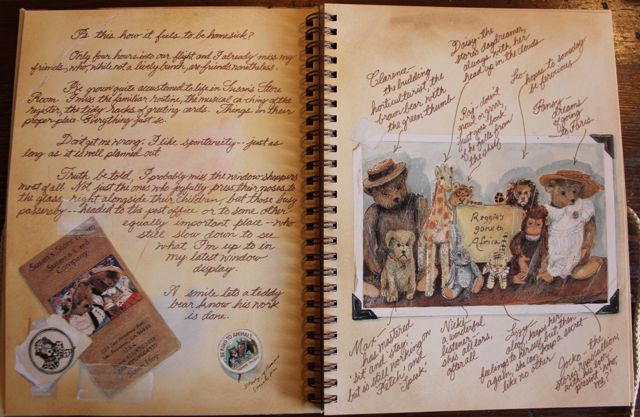 Is this how it feels to be homesick?
Only four hours into our flight and I already miss my
friends, who, while not a lively bunch, are friends nonetheless.
I've grown quite accustomed to life in Susan's Store
Room. I miss the familiar routine, the musical ca-ching of the
register, the tidy racks of greeting cards. Things in their
proper place. Everything just so.
Don't get me wrong. I like spontaneity - just as
long as it is well planned out.
Truth be told, I probably miss the window shoppers
most of all. Not just the ones who joyfully press their noses to
the glass, right alongside their children, but those busy
passersby - headed to the post office or to some other
equally important place - who
still slow down to see
what I'm up to in
my latest window
display.
A smile lets a teddy
bear know his work
is done.
Susan's Store Room
Susan's Card
Company
BE KIND TO ANIMALS
Clarence -
the budding
horticulturist, the
brown bear with
the green thumb
Daisy - the
store's daydreamer,
always with her
head up in the clouds
Leo hopes to someday
be ferocious
Roz didn't
just
Fanny
dreams
of going
to Paris
Reggie's
gone to
Africa
Max - has mastered
'sit' and 'stay',
but is still working on
'fetch' and
'speak'
Nicki -
a wonderful
listener -
she's all ears,
after all
Lizzy -
may keep her
feelings to herself, but then
again, she can keep a secret
like no other
Jocko - the
story
"who,
me?"